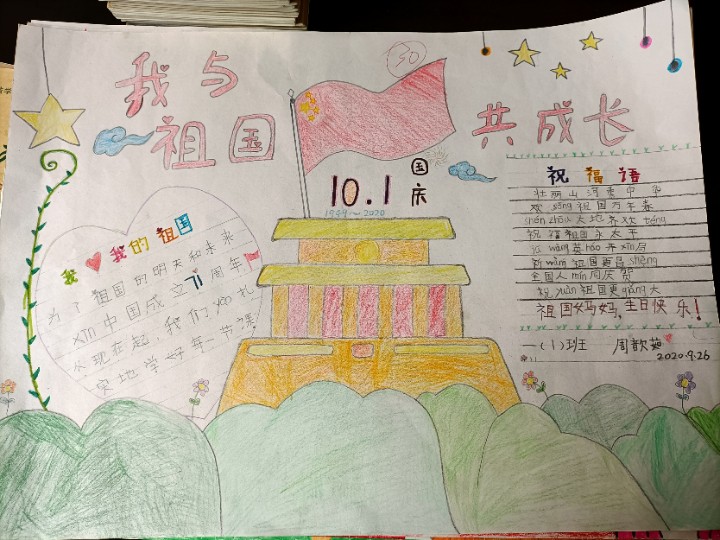 我与
祖国
共成长
30
国庆
10.1
1949~2020
我 我的祖国
为了祖国的明天和未来
xīn中国成立71周年!
从现在起,我们
实地学好每一节课
祝福语
壮丽山河
祖国万年春
shén zhōu大地齐欢téng
祝福祖国永太平
wàng
祖国更昌shèng
全国人mín同庆贺
祝yuàn祖国更qiáng大
祖国妈妈,生日快乐!
一(1)班 周歆茹
2020.9.26